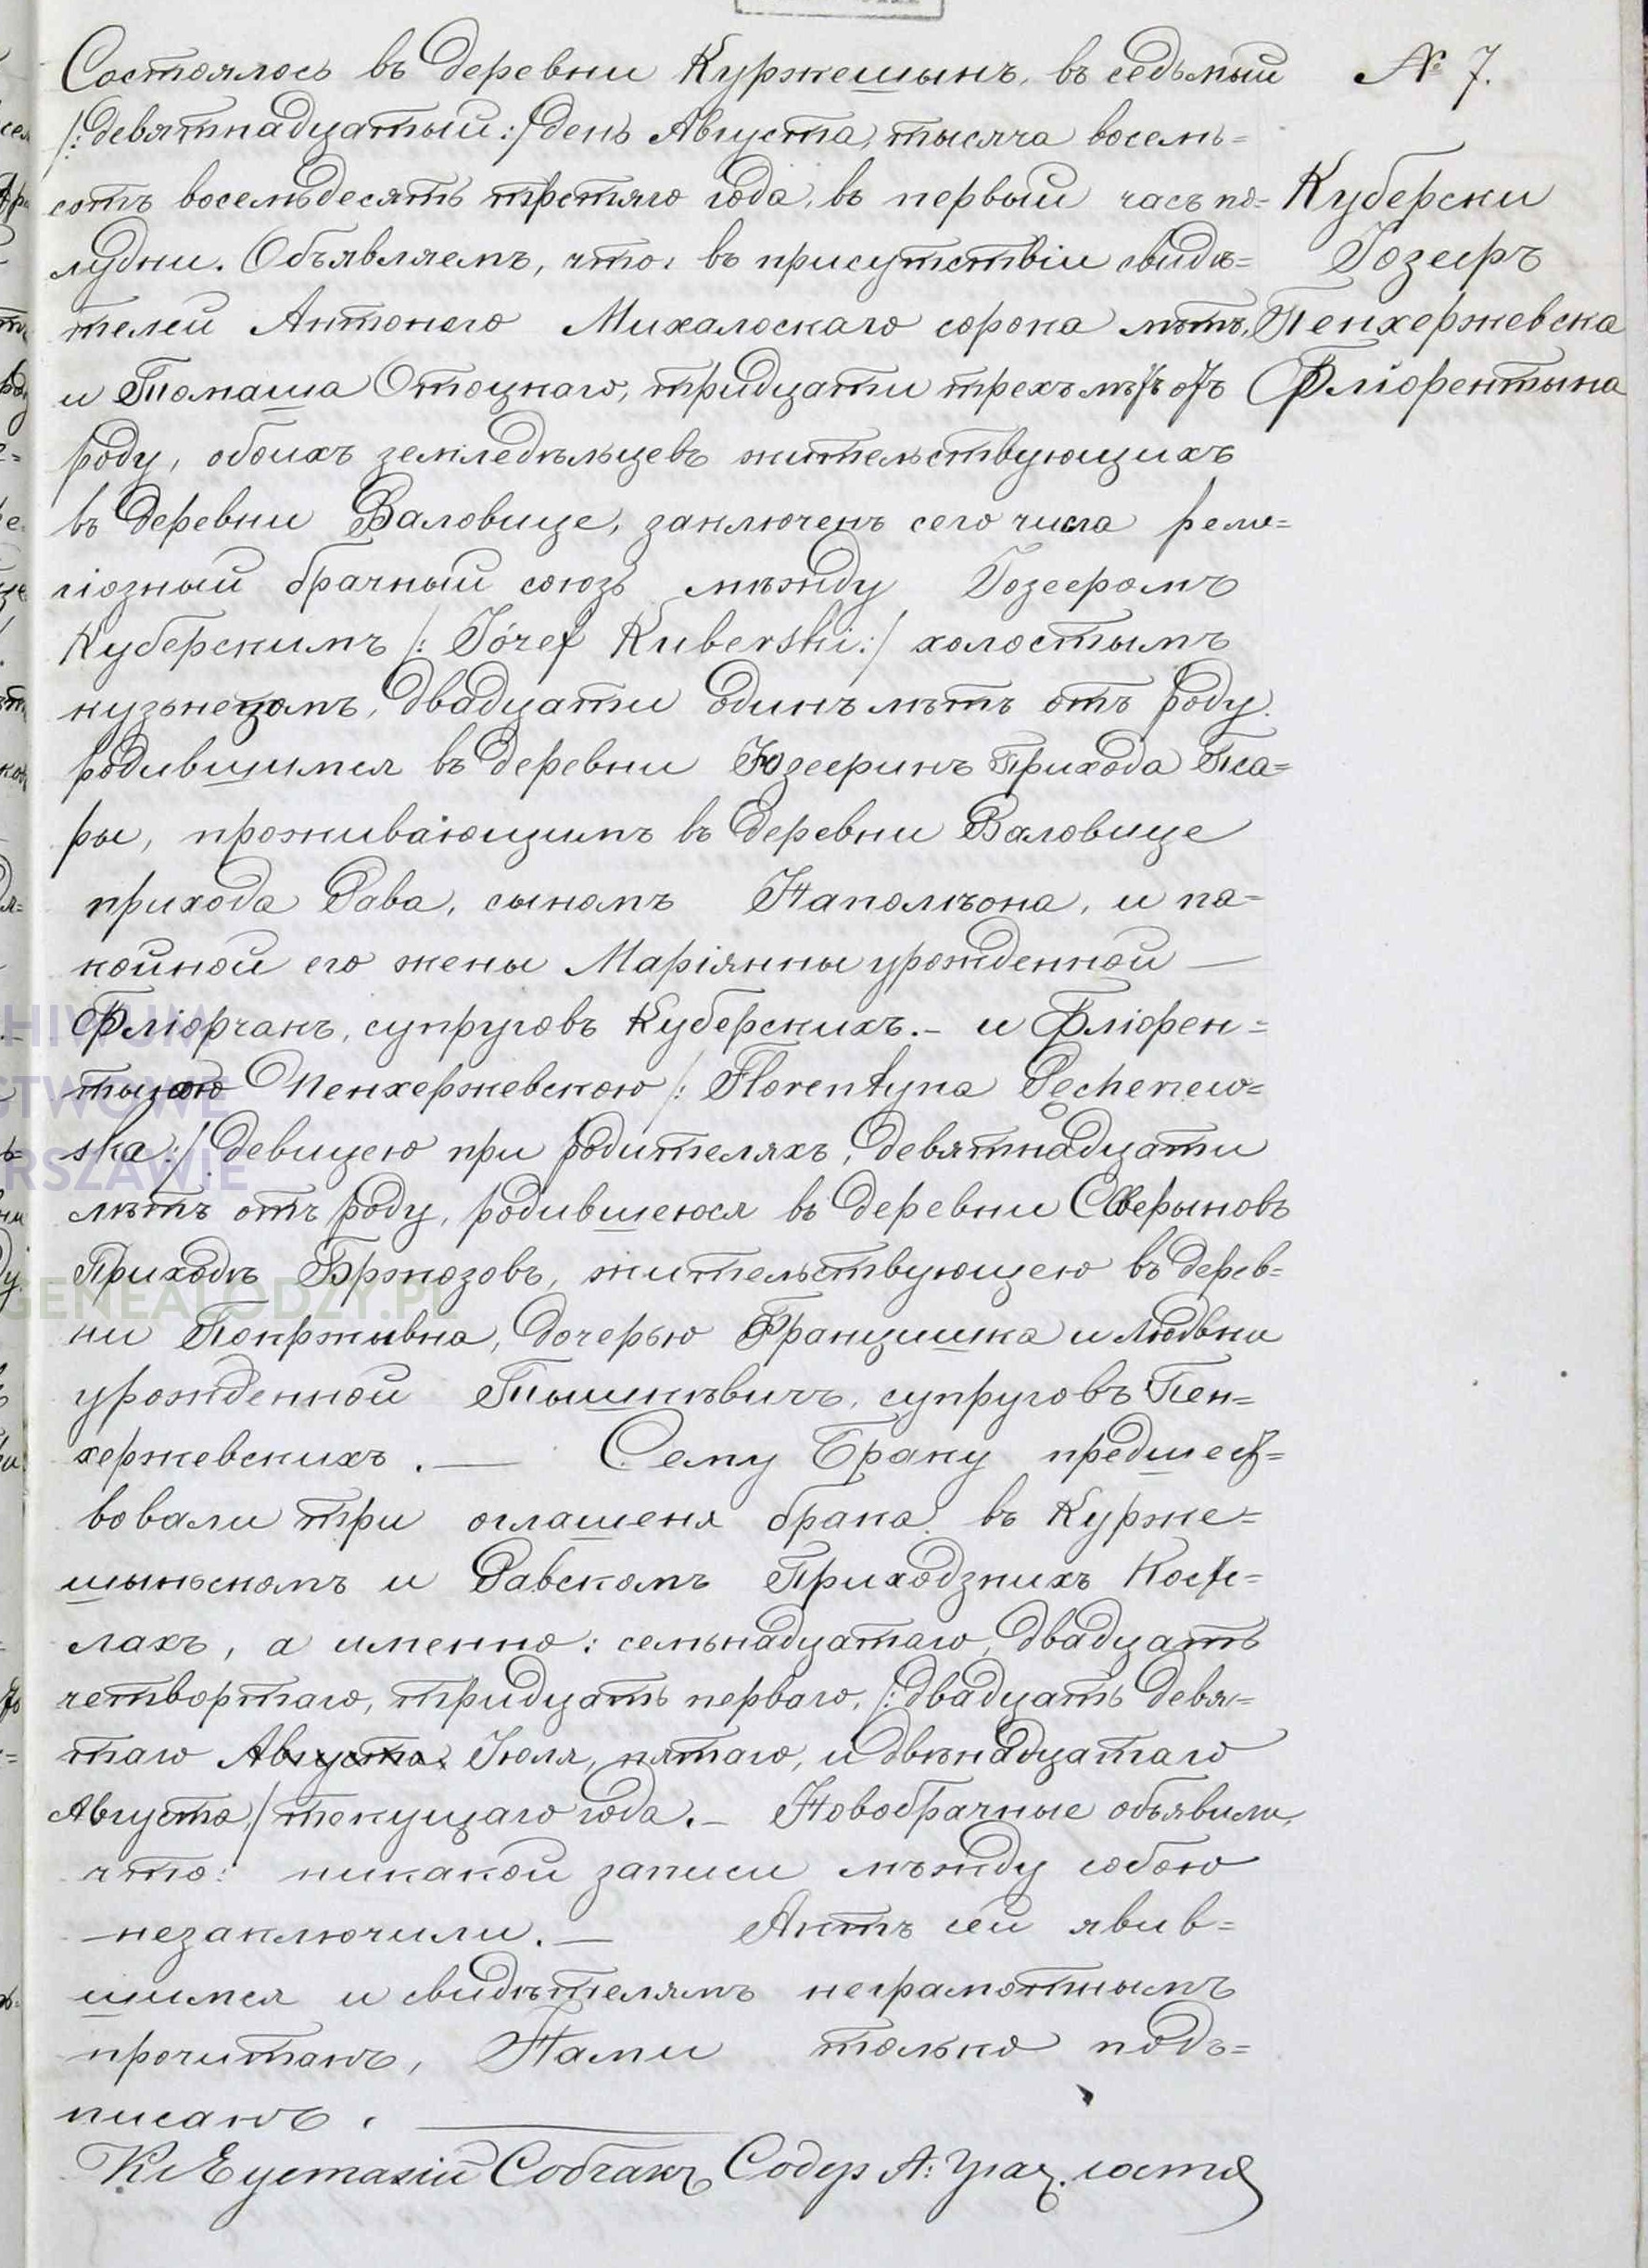 Состоялось въ деревни Куржешынъ, въ седьмый
№ 7.
/: девятнадцатый :/ день Августа, тысяча восемь=
сотъ восемьдесятъ третяго года, въ первый часъ по=
Куберски
лудни. Объявляемъ, что, въ присутствіи свидѣ=
Іозефъ
телей Антонего Михалоскаго сорока лѣтъ,
Пенхержевска
и Томаша Отоцкаго, тридцати трехъ лѣтъ отъ
Фліорентына
роду, обоихъ земледѣльцевъ жительствующихъ
въ деревни Валовице, заключенъ сего числа рели=
гіозный брачный союзъ мѣжду Іозефомъ
Куберскимъ /: Józef Kuberski :/ холостымъ
кузьнецомъ, двадцати одинъ лѣтъ отъ роду.
родившимся въ деревни Юзефинъ Прихода Пса=
ры, проживающимъ въ деревни Валовице
прихода Рава, сыномъ Наполѣона, и по=
койной его жены Маріянны урожденной —
Фліорчакъ, супруговъ Куберскихъ. - и Фліорен=
тыною Пенхержевскою /: Florentyna Pęcherzew=
ska :/ девицею при родителяхъ, девятнадцати
лѣтъ отъ роду, родившеюся въ деревни Северыновъ
Приходѣ Бржозовъ, жительствующею въ дерев=
ни Покржывна, дочерью Францишка и Людвики
урожденной Тышкѣвичъ, супруговъ Пен=
хержевскихъ. — Сему Браку предшест=
вовали три оглашеня брака въ Курже=
шыньскомъ и Равскомъ Приходзкихъ Косте=
лахъ, а именно: семьнадцатаго, двадцать
четвортаго, тридцать перваго, /: двадцать девя=
таго Августа Іюля, пятаго, и двѣнадцатаго
Августа :/ текущаго года. - Новобрачные объявили,
что: никакой записи мѣжду собою
незаключили. — Актъ сей явив=
шимся и свидѣтелямъ неграмотнымъ
прочитанъ, Нами только подъ=
писанъ. —
Кс Еустахій Собчакъ Содер А: Граж. состоя